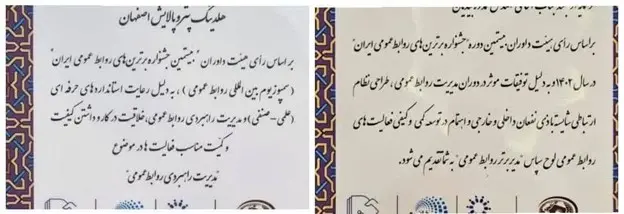 هلدینگ پتروپالایش اصفهان
بر اساس رأی هیئت داوران "بیستمین جشنواره برترین‌های روابط عمومی ایران"
(سمپوزیوم بین المللی روابط عمومی) ، به دلیل رعایت استانداردهای حرفه ای
(علمی-صنفی) و مدیریت راهبردی روابط عمومی، خلاقیت در کار و داشتن کیفیت
و کمیت مناسب فعالیت ها در موضوع
"مدیریت راهبردی روابط عمومی"
بر اساس رأی هیئت داوران بیستمین دوره "جشنواره برترین های روابط عمومی ایران"
در سال ۱۴۰۲ و به دلیل توفیقات موثر در دوران مدیریت روابط عمومی ، طراحی نظام
ارتباطی شایسته با ذی نفعان داخلی و خارجی و اهتمام در توسعه کمی و کیفی فعالیت های
روابط عمومی لوح سپاس "مدیر برتر روابط عمومی" به شما تقدیم می شود.